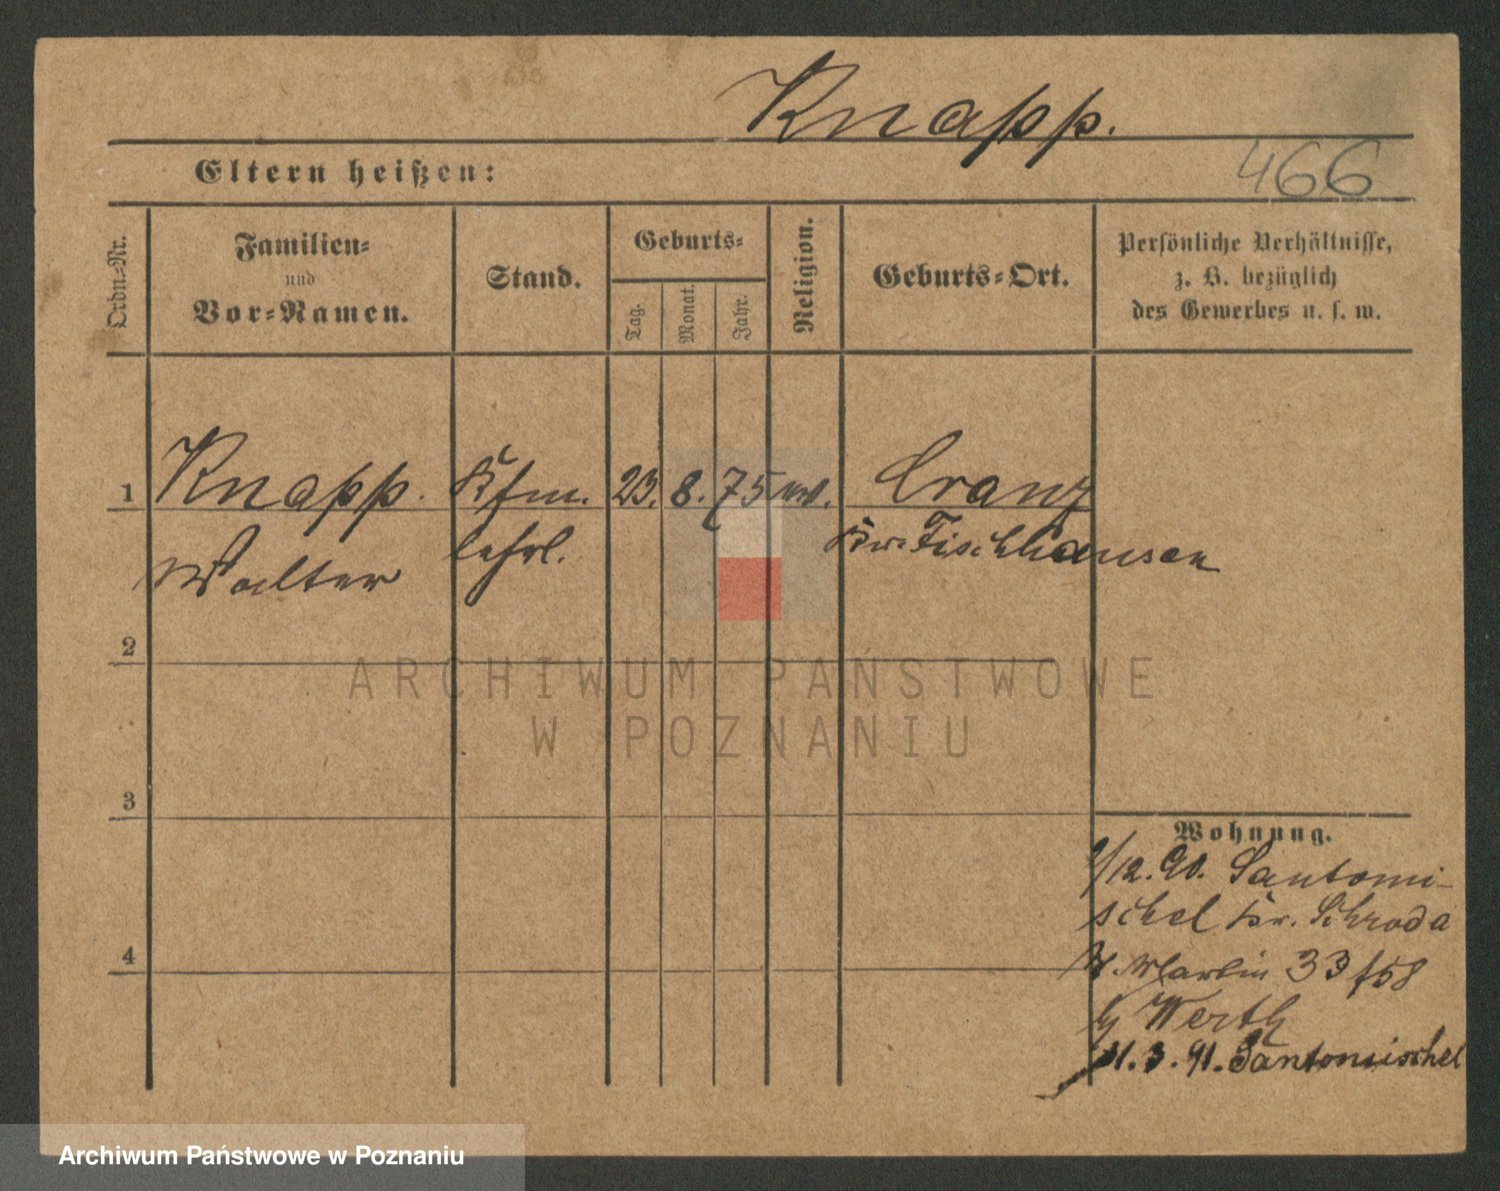 Knapp.
Eltern heißen:
466
Ordn.-Nr.
Familien-
und
Vor-Namen.
Stand.
Geburts-
Tag.
Monat.
Jahr.
Religion.
Geburts-Ort.
Persönliche Verhältnisse,
z. B. bezüglich
des Gewerbes u. s. w.
1 Knapp. Kfm. 23. 8. 75 Cranz
Walter lehrl. Kr. Fischhausen
2
3
4
Wohnung.
/12. 90. Santomi-
schel Kr. Schroda
St. Martin 33
Werth
31. 3. 91. Santomischel
ARCHIWUM PAŃSTWOWE
W POZNANIU
Archiwum Państwowe w Poznaniu